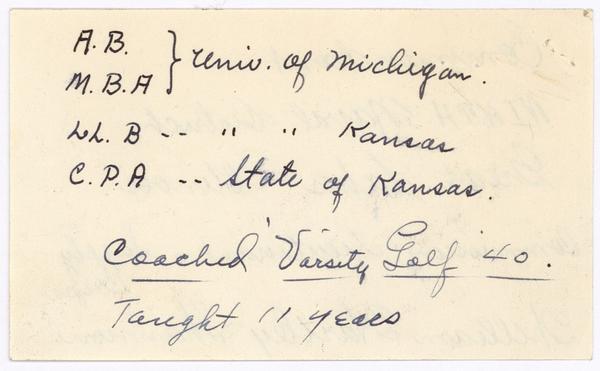 A.B. } Univ. of Michigan.
M.B.A
LL.B -- " " Kansas
C.P.A -- State of Kansas.
Coached Varsity Golf '40.
Taught 11 years